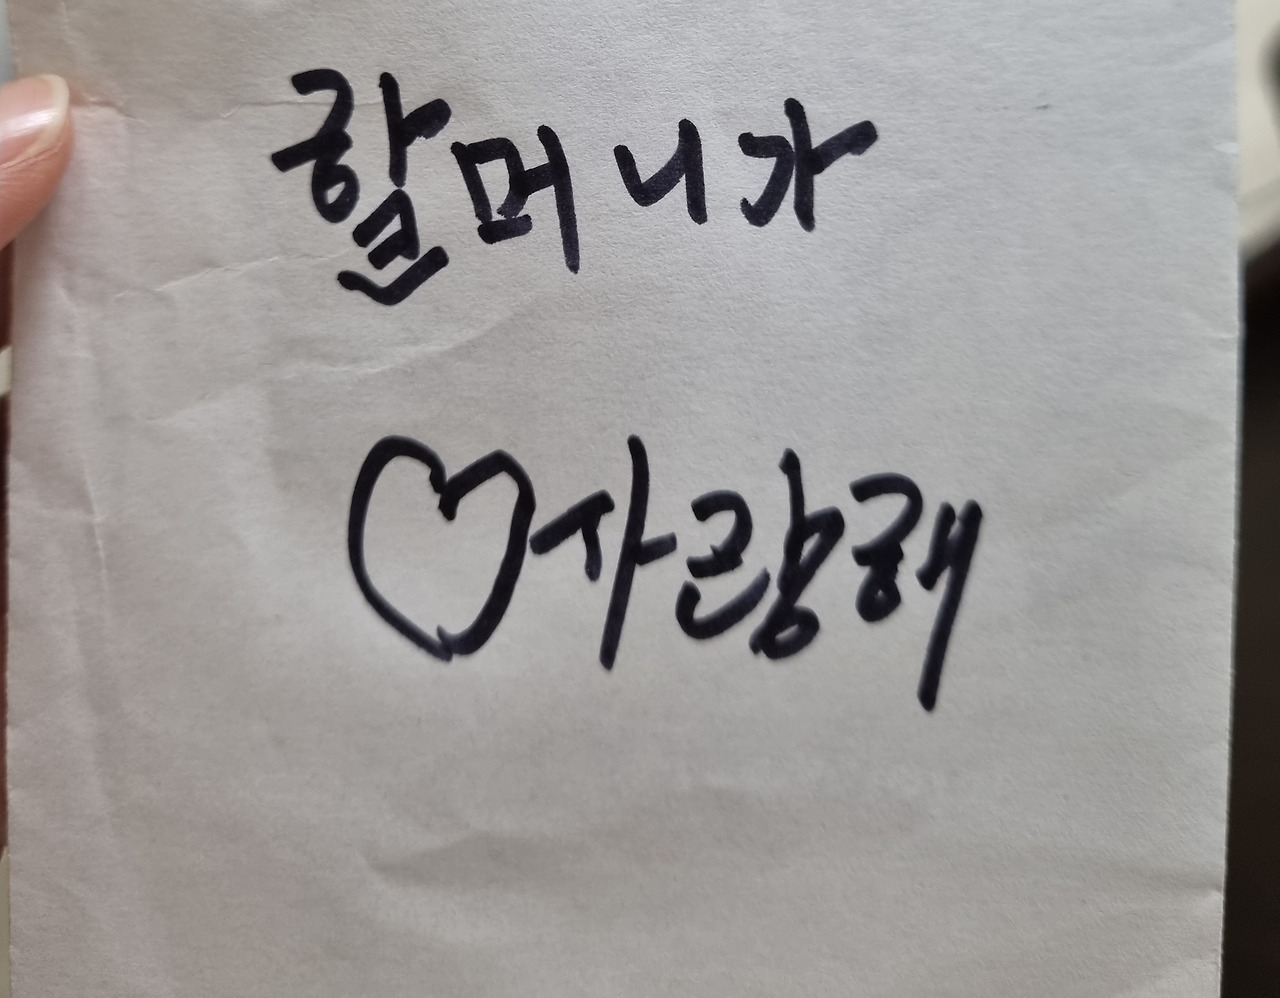 할머니가
♡사랑해